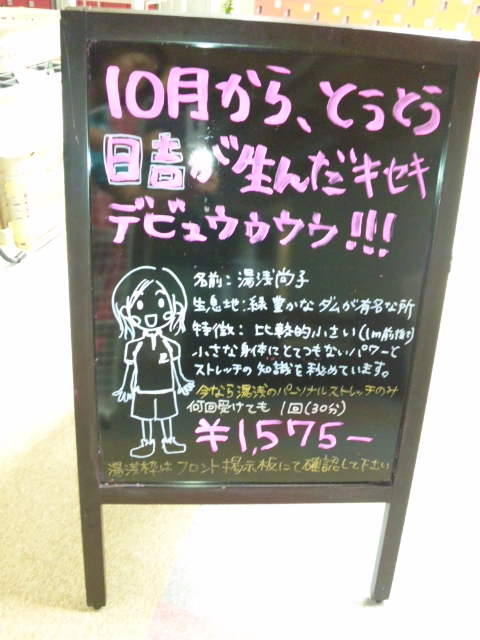 10月から、とうとう
日吉が生んだキセキ
デビュウゥウゥ!!!
名前:湯浅尚子
生息地:緑豊かなダムが有名な所
特徴:比較的小さい(1m前後?)
小さな身体にとてつもないパワーと
ストレッチの知識を秘めています。
今なら湯浅のパーソナルストレッチのみ
何回受けても 1回(30分)
¥1,575-
湯浅枠はフロント掲示板にて確認して下さい